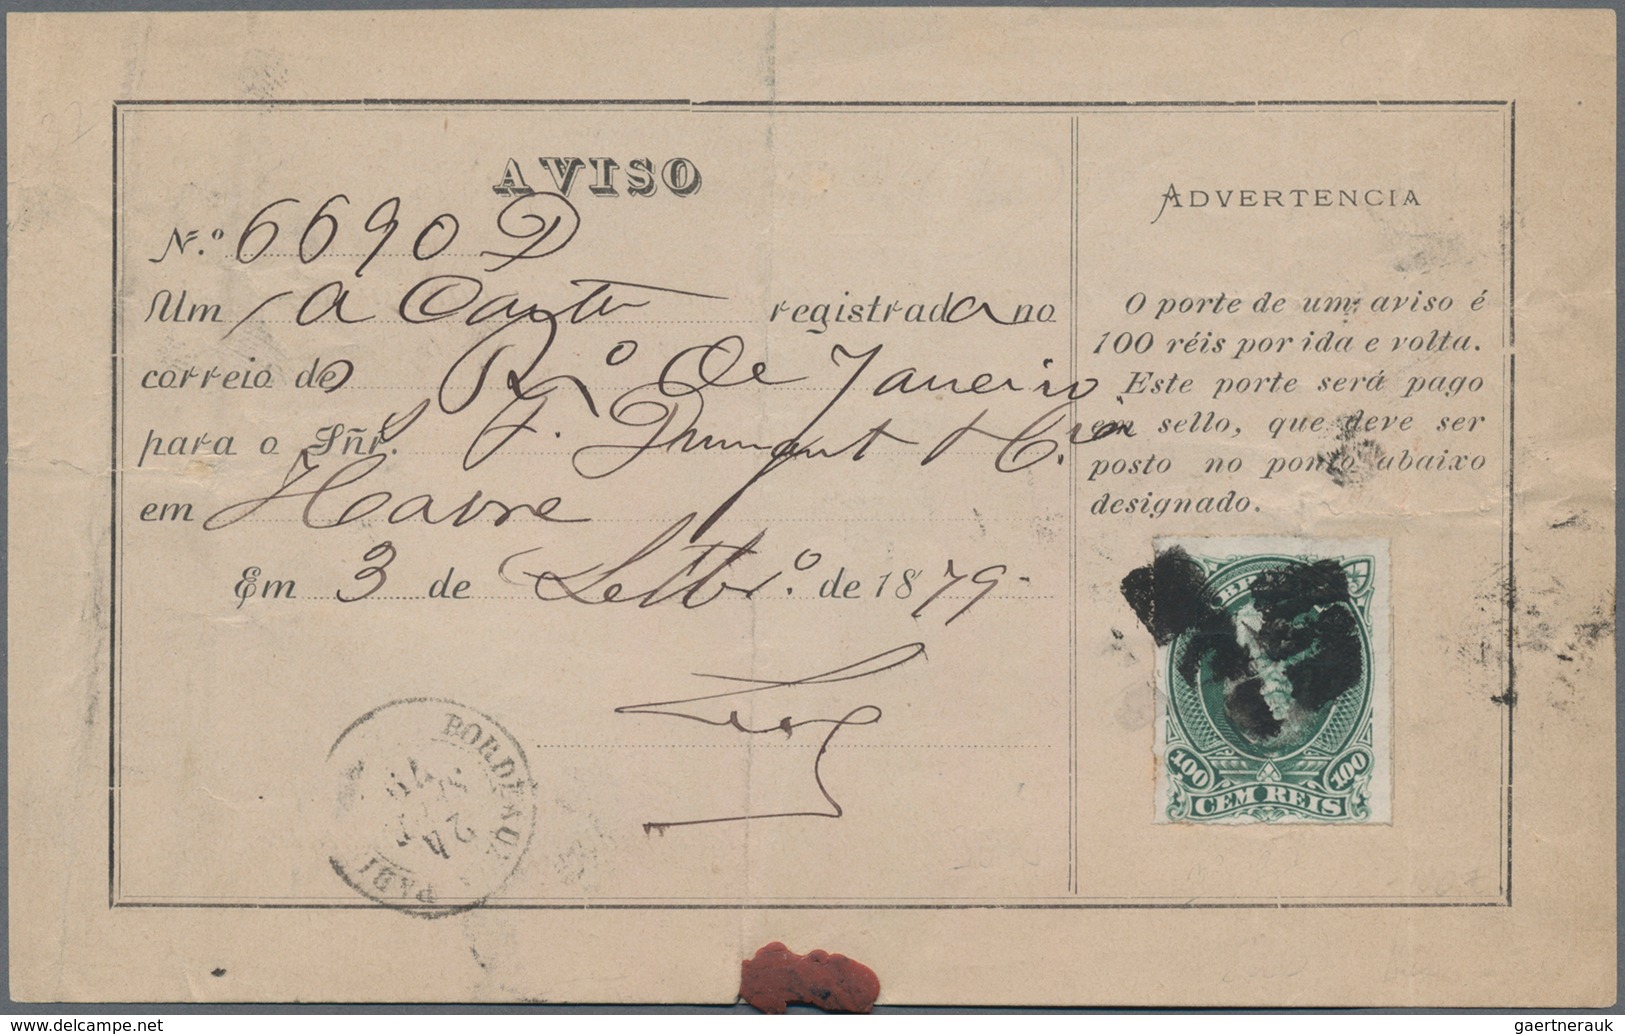 AVISO
N.º 6690 D
Um a Carta registrada no
correio do Rº de Janeiro
para o Sñr.
em Havre
Em 3 de Setbrº. de 1879
ADVERTENCIA
O porte de um aviso é
100 réis por ida e volta.
Este porte será pago
em sello, que deve ser
posto no ponto abaixo
designado.
100 100
CEM REIS
BORDEAUX
PARI
gaertnerauk @ delcampe.net